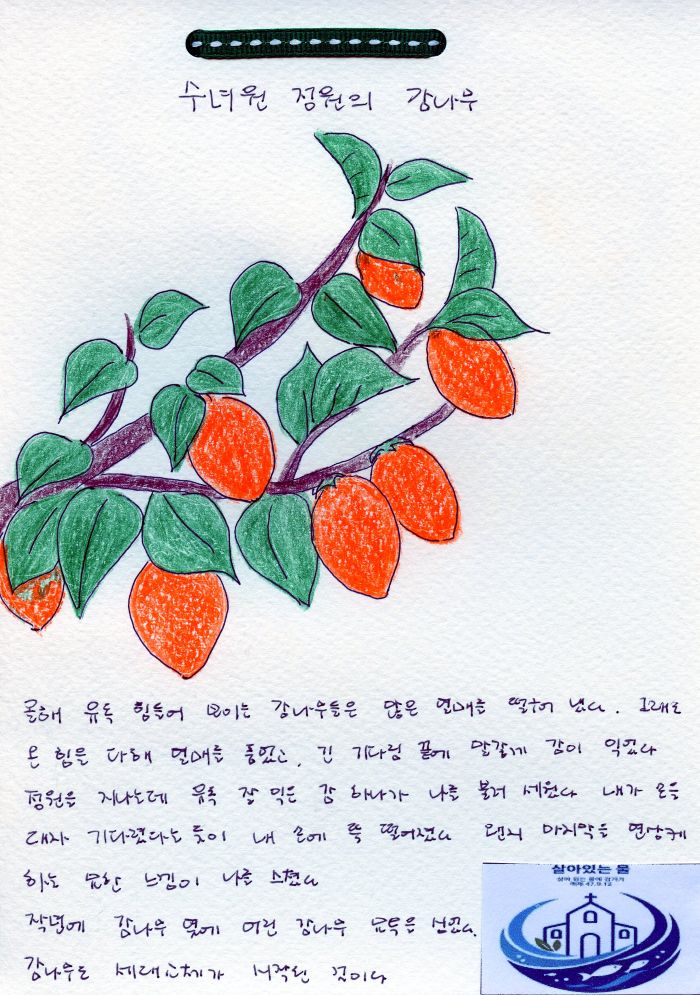 수녀원 정원의 감나무
올해 유독 힘들어 보이는 감나무들은 많은 열매를 떨구어 냈다. 그래도
온 힘을 다해 열매를 품었고, 긴 기다림 끝에 말갛게 감이 익었다
정원을 지나는데 유독 잘 익은 감 하나가 나를 불러 세웠다 내가 손을
대자 기다렸다는 듯이 내 손에 뚝 떨어졌다 왠지 마지막을 연상케
하는 묘한 느낌이 나를 스쳤다
작년에 감나무 옆에 어린 감나무 묘목을 심었다.
감나무도 세대교체가 시작된 것이다
살아있는 물